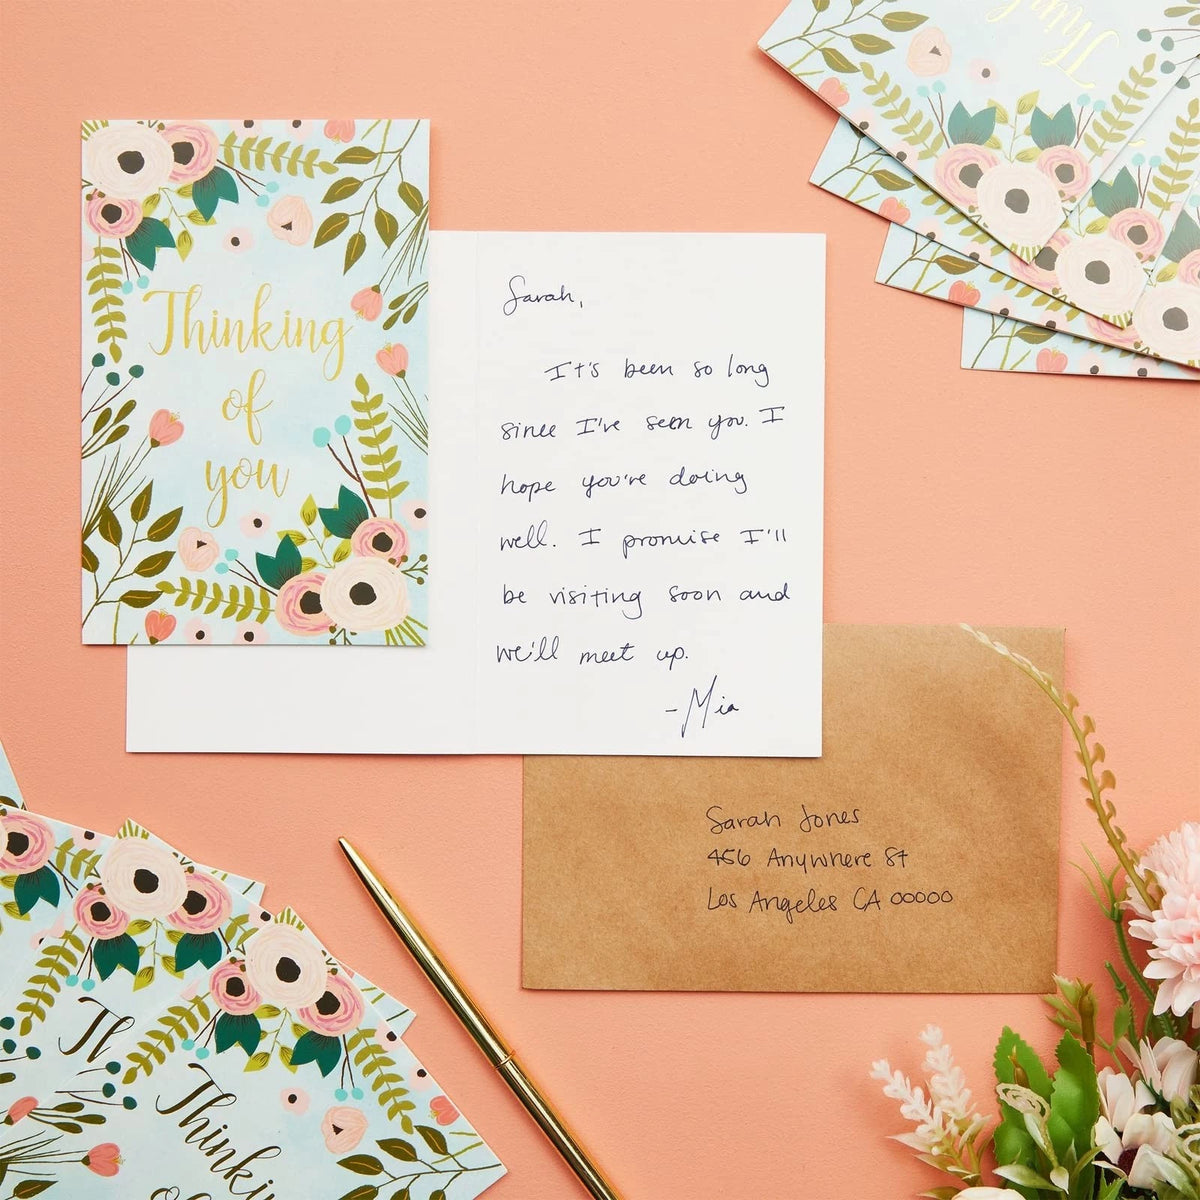 Thinking
of
you
Sarah,
It's been so long
since I've seen you. I
hope you're doing
well. I promise I'll
be visiting soon and
we'll meet up.
-Mia
Sarah Jones
456 Anywhere St
Los Angeles CA 00000
Thin
Th
Thinki
of